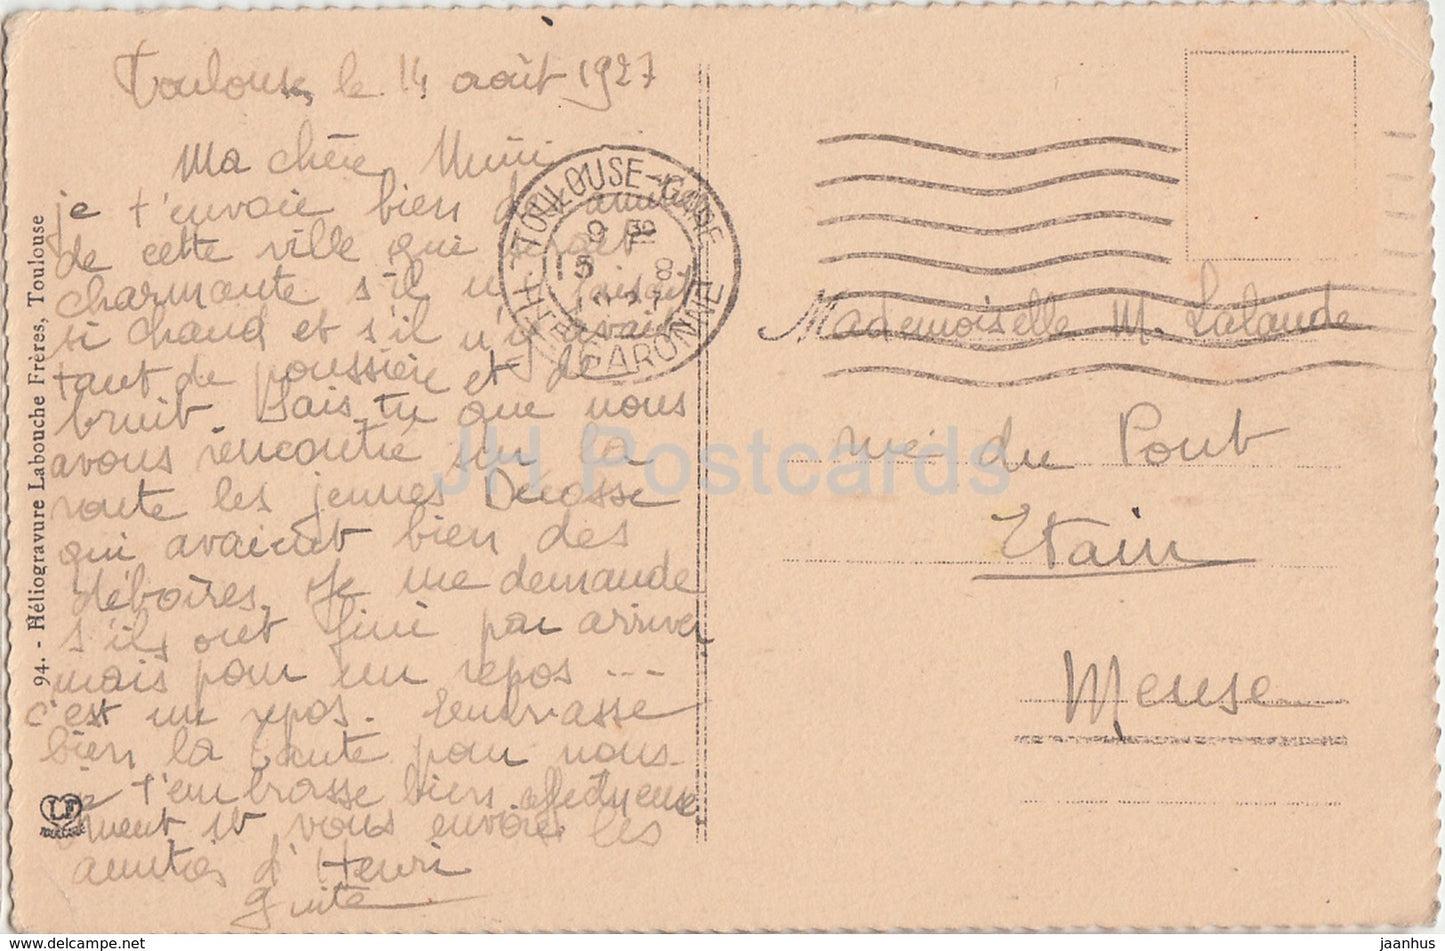 Toulouse, le 14 août 1927
Ma chère Mimi
je t'envoie bien d'
de cette ville qui serait
charmante s'il n'y faisait
si chaud et s'il n'y avait
tant de poussière et de
bruit. Sais-tu que nous
avons rencontré sur la
route les jeunes Decosse
qui avaient bien des
déboires. Je me demande
s'ils ont fini par arriver
mais pour un repos ---
c'est un repos. Embrasse
bien la tante pour nous.
je t'embrasse bien affectueuse
ment et vous envoie les
amitiés d'Henri
Guite
94. - Héliogravure Labouche Frères, Toulouse
LF
TOULOUSE-GARE
9
15 8
1927
HTE GARONNE
Mademoiselle M. Lalande
rue du Pont
Etain
Meuse
JH Postcards
jaanhus.com